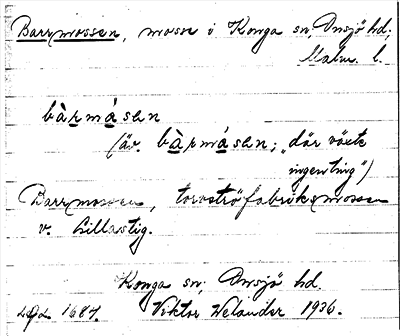 Barrmossen, mosse i Konga sn, Onsjö hd,
Malm. l.
bàrmásen
(äv. bàrmásen; „där växte
ingenting”)
Barrmossen, torvströfabriksmossen
v. Lillastig.
Konga sn, Onsjö hd.
1687. Viktor Welander 1936.